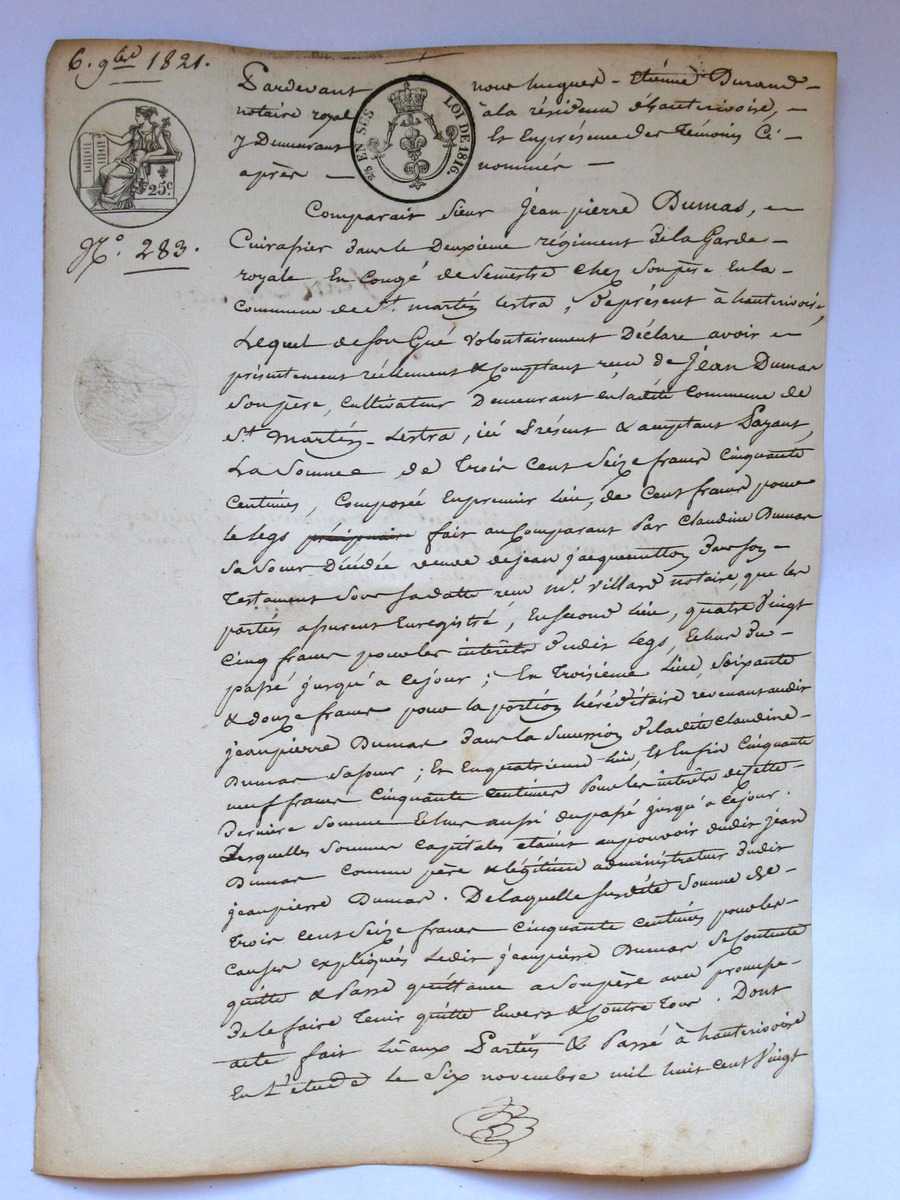 6. 9bre 1821.
Pardevant nous hugues - étienne Durand -
notaire royal à la résidence d'hauterivoire, -
y Demeurant Et En présence des Témoins Ci -
après - nommés -
25 EN SUS
LOI DE 1816.
25c.
N°. 283.
Comparait Sieur Jean pierre Dumas, -
Cuirassier Dans le Deuxième régiment De la Garde -
royale En Congé de Semestre chez Son père En la -
Commune de St. martin Lestra, De présent à hauterivoire,
Lequel de son Gré Volontairement Déclare avoir -
présentement réellement & Comptant reçu de Jean Dumas
Son père, Cultivateur Demeurant En ladite Commune de
St. Martin - Lestra, ici Présent & acceptant Payant,
La Somme de Trois Cent Seize francs Cinquante
Centimes, Composée En premier Lieu, de Cent francs pour
le legs préciputaire fait au Comparant Par Claudine Dumas
Sa Soeur Décédée veuve de jean jacquemetton Dans Son -
Testament Sous Sa datte reçu me. Villard notaire, que les
parties assurent Enregistré, En Second lieu, quatre Vingt
Cinq francs pour les intérêts Dudit Legs, Echus Du -
passé jusqu'à Ce jour ; En Troisième Lieu, Soixante
& douze francs pour la portion héréditaire revenant audit
jean pierre Dumas Dans la Succession De ladite Claudine -
Dumas Sa soeur ; Et En quatrième Lieu, Et Enfin Cinquante
neuf francs Cinquante Centimes Pour les intérêts de Cette -
Dernière Somme Echus aussi du passé jusqu'à Ce jour.
Desquelles Sommes Capitales étaient au pouvoir dudit jean
Dumas Comme père & légitime administrateur Dudit
jean pierre Dumas. De laquelle Susdite Somme de -
Trois Cent Seize francs Cinquante Centimes pour les -
Causes expliquées Ledit jean pierre Dumas Se Contente
quitte & Passe quittance a Son père avec promesse -
De le faire Tenir quitte Envers & Contre Tous. Dont
acte fait Lu aux Parties & Passé à hauterivoire
En L'étude Le Six novembre mil huit Cent Vingt